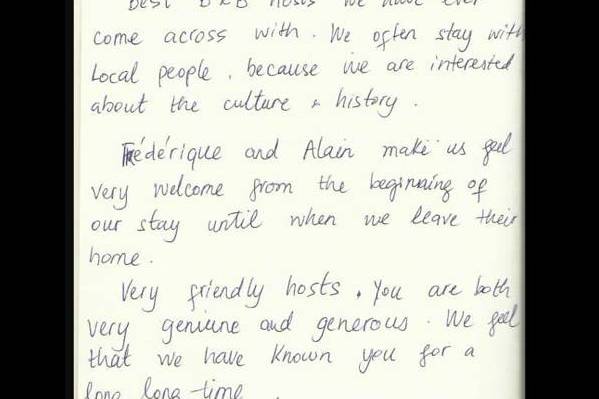 Best B&B hosts we have ever
come across with. We often stay with
local people, because we are interested
about the culture & history.
Frédérique and Alain make us feel
very welcome from the beginning of
our stay until when we leave their
home.
Very friendly hosts. You are both
very geniune and generous. We feel
that we have known you for a
long long time.